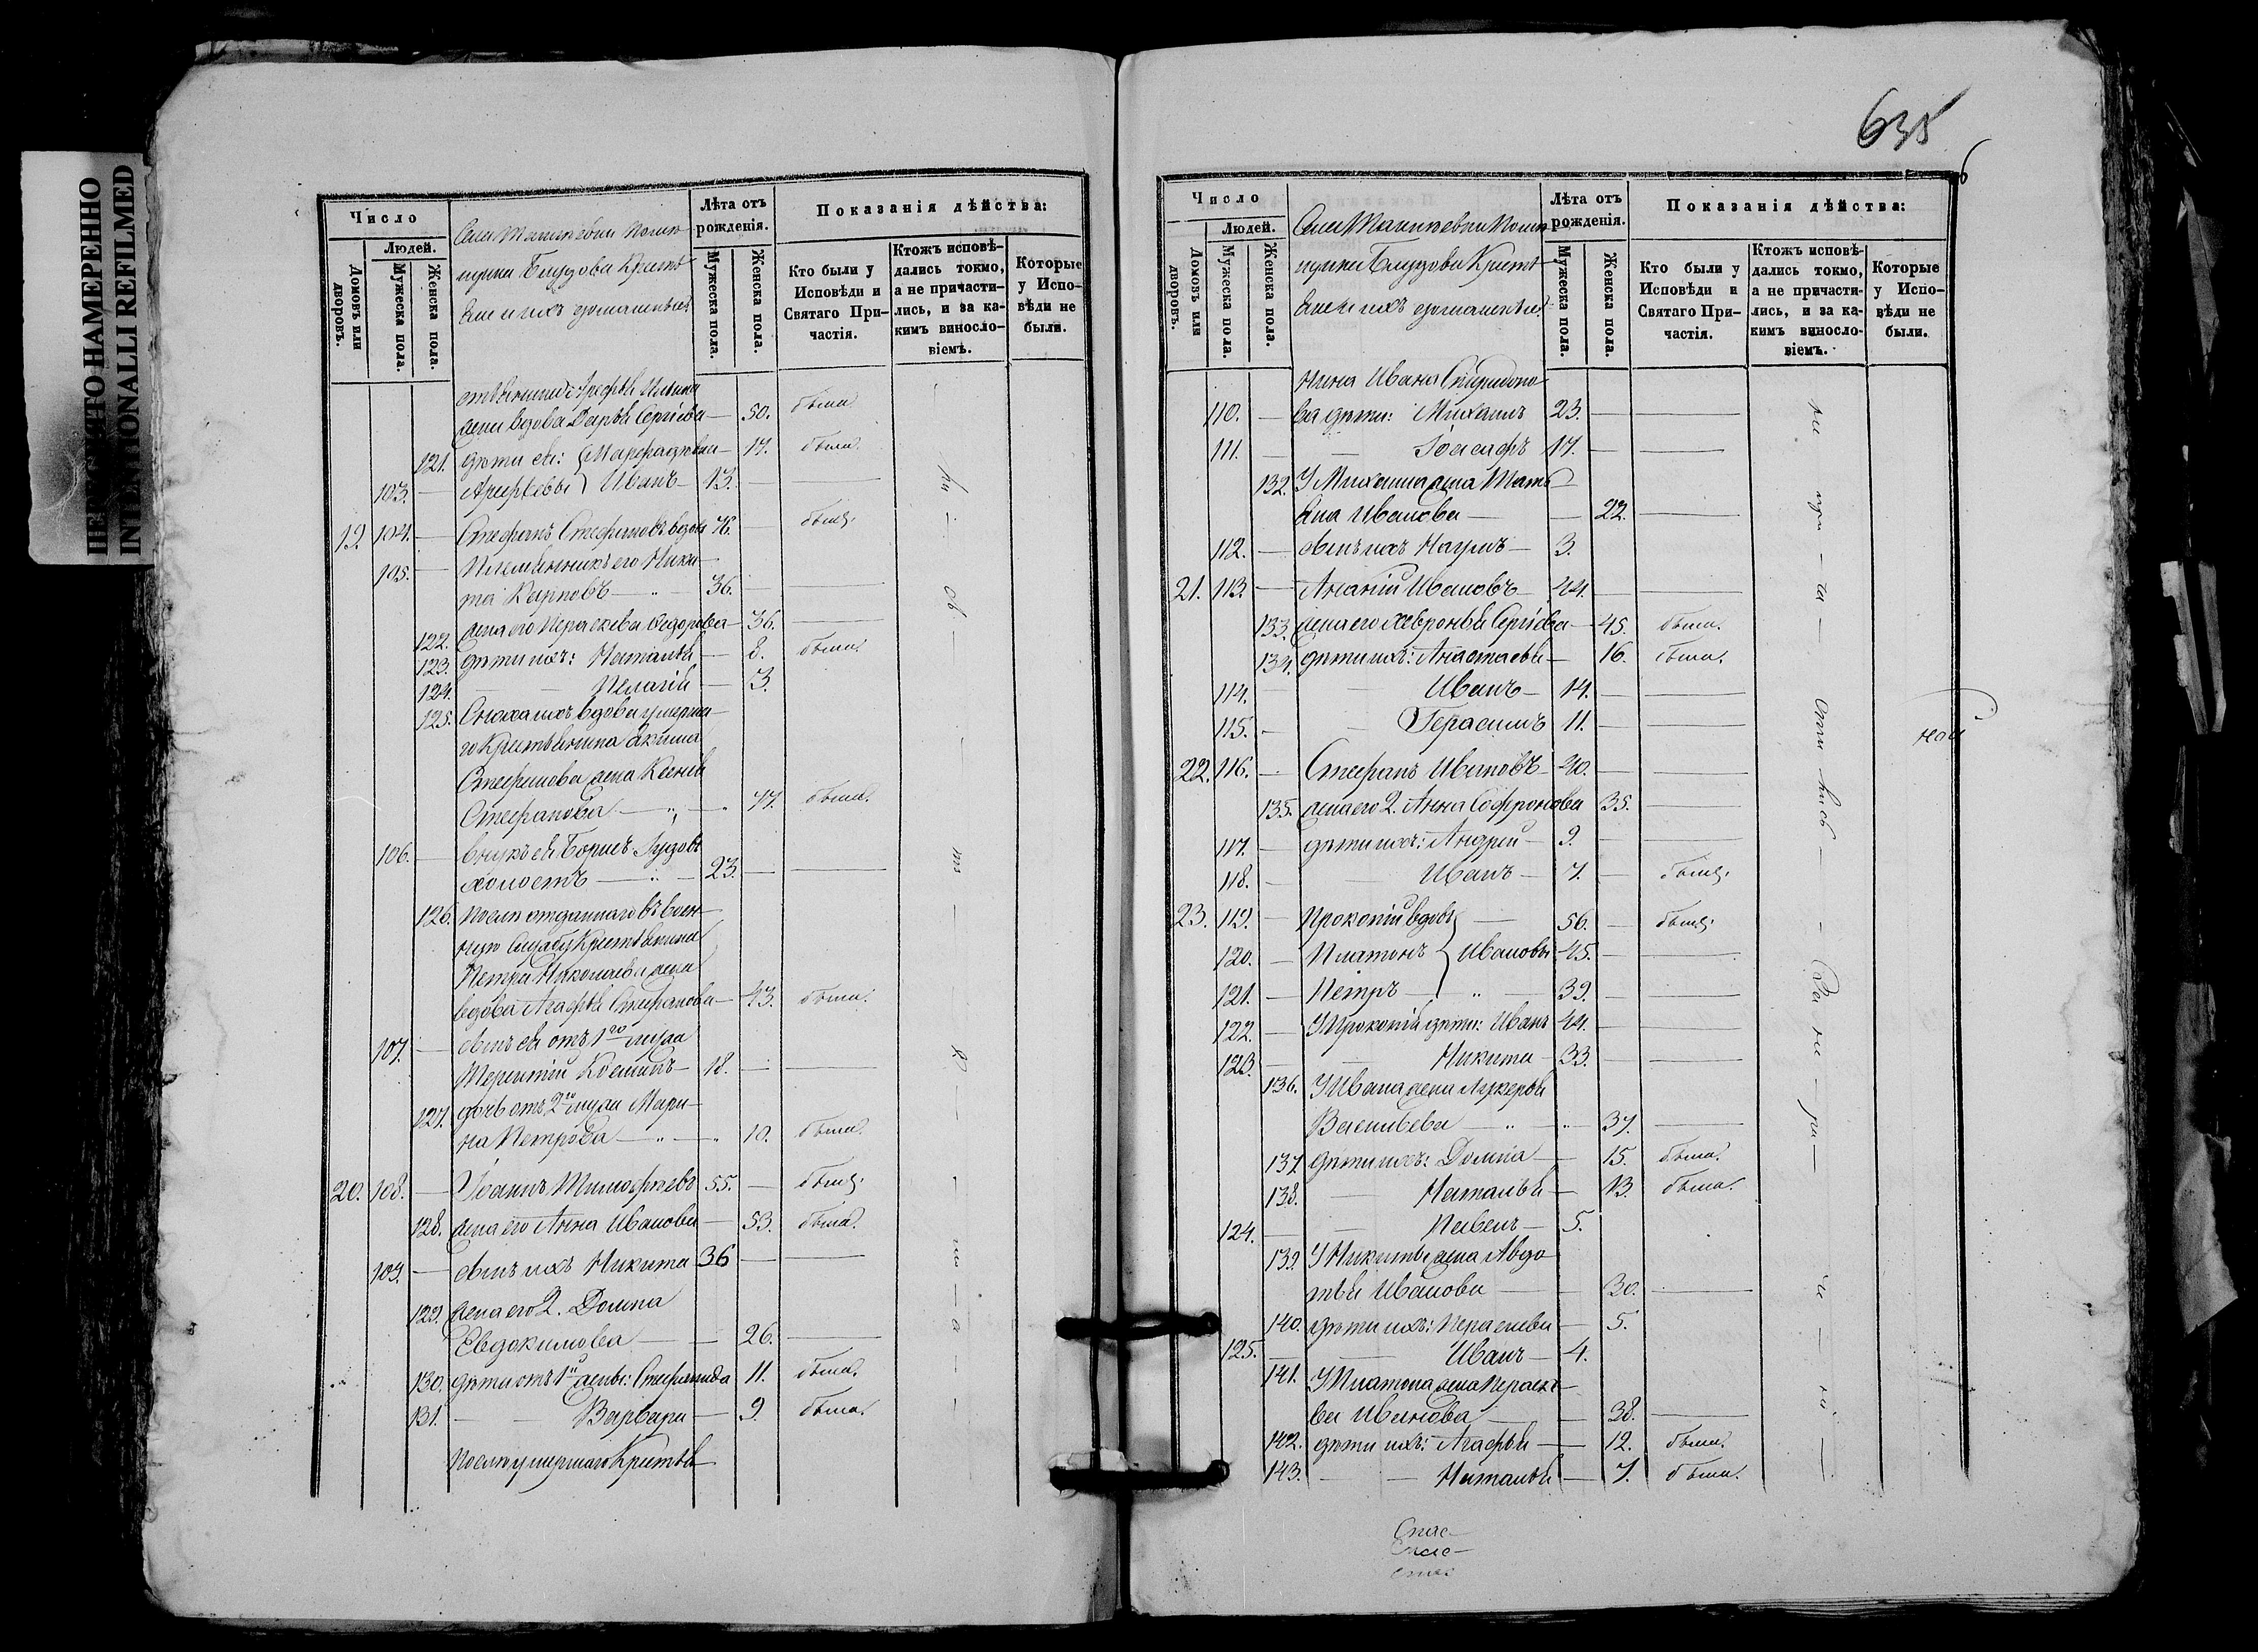 НЕЧЕТКО НАМЕРЕННО
INTENTIONALLI REFILMED
Число
Людей.
Домовъ или дворовъ.
Мужеска пола.
Женска пола.
Лѣта отъ рожденія.
Мужеска пола.
Женска пола.
Показанія дѣйства:
Кто были у Исповѣди и Святаго Причастія.
Ктожъ исповѣдались токмо, а не причастились, и за какимъ винословіемъ.
Которые у Исповѣди не были.
жена вдова Дарья Сергіева — 50. была
121. дѣти ея: — 17. была
103. — Иванъ — 13. —
19. 104. — Стефанъ Стефановъ вдовъ 76. — былъ
105. — Племянникъ его Ники-
та Карповъ — 36. —
122. жена его Параскева Ѳедорова — 36. —
123. дѣти ихъ: Наталья — 8. была
124. — — Пелагія — 3.
125. Сноха ихъ вдова умерша-
го Крестьянина
Стефанова жена Ксенія
Стефанова — 77. была
106. — внукъ ея Борисъ
холостъ — 23. —
126. Послѣ отданнаго въ воен-
ную службу Крестьянина
Петра Николаева жена
вдова Агафья Стефанова — 43. была
107. — сынъ ея отъ 1го мужа
Терентій Косминъ — 18. —
127. дочь отъ 2го мужа Мари-
на Петрова — 10. была
20. 108. — Іоаннъ Тимофѣевъ 55. — былъ
128. жена его Анна Иванова — 53. была
109. — сынъ ихъ Никита 36 —
129. жена его 2. Домна
Евдокимова — 26. —
130. дѣти отъ 1й жены: Стефанида 11. была
131. — — Варвара — 9. была
Послѣ умершаго Крестья-
635
Число
Людей.
Домовъ или дворовъ.
Мужеска пола.
Женска пола.
Лѣта отъ рожденія.
Мужеска пола.
Женска пола.
Показанія дѣйства:
Кто были у Исповѣди и Святаго Причастія.
Ктожъ исповѣдались токмо, а не причастились, и за какимъ винословіемъ.
Которые у Исповѣди не были.
нина Ивана Спиридоно-
110. — ва дѣти: Михаилъ 23. —
111. — — Іоасафъ 17. —
132. У Михаила жена Тать-
яна Иванова — 22. —
112. — сынъ ихъ Наумъ — 3.
21. 113. — Ананій Ивановъ — 44. —
133. жена его Хевронья Сергіева — 45. была.
134. дѣти ихъ: Анастасья — 16. была.
114. — Иванъ — 14. —
115. — Герасимъ 11. —
22. 116. — Стефанъ Ивановъ — 40. —
135. жена его 2. Анна Софронова 35. —
117. — дѣти ихъ: Андрей — 9. —
118. — Иванъ — 7. — былъ
23. 119. — Прокопій вдовъ — 56. — былъ
120. — Платонъ Ивановы 45. —
121. — Петръ — 39. —
122. — У Прокопія дѣти: Иванъ 44. —
123. — Никита — 33. —
136. У Ивана жена Лукерья
Васильева — 37. —
137. дѣти ихъ: Домна — 15. была
138. — Наталья — 13. была
124. — Павелъ — 5.
139. У Никиты жена Авдо-
тья Иванова — 30. —
140. дѣти ихъ: Параскева — 5.
125. — Иванъ — 4.
141. У Платона жена Параске-
ва Иванова — 38. —
142. дѣти ихъ: Агафья — 12. была
143. — — Наталья — 7. была